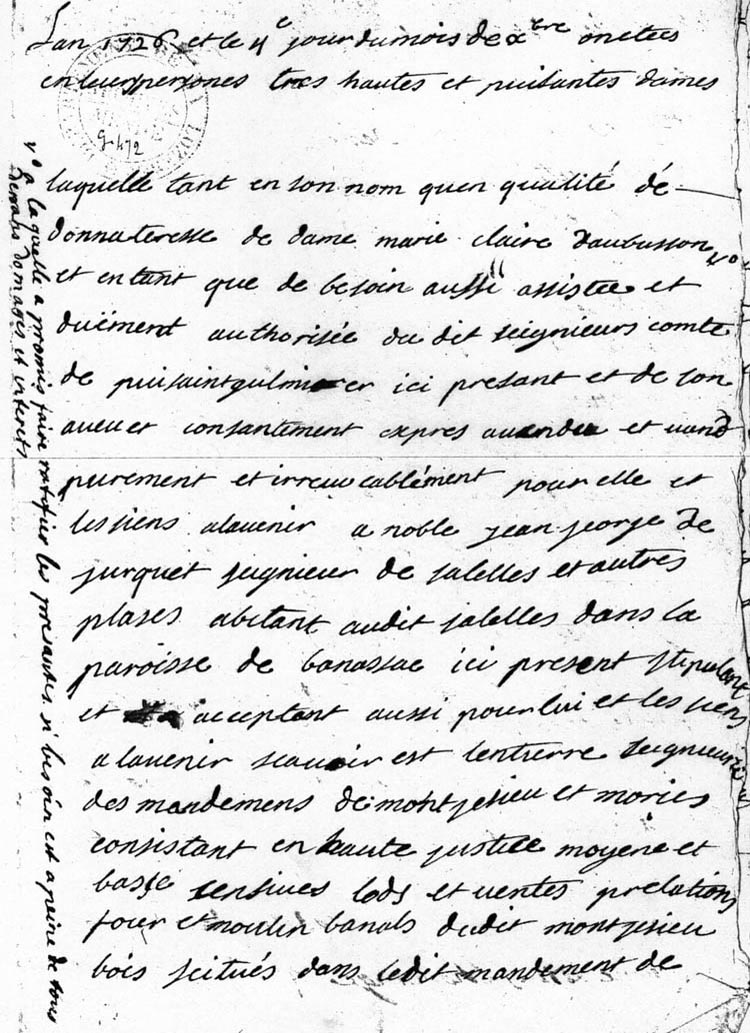 Lan 1726 et le 4e jour du mois de xbre on etees
en leurs persones tres hautes et puisantes dames
g 472
laquelle tant en son nom quen qualité dé
donnateresse de dame marie claire daubusson vo
et en tant que de besoin aussi assistée et
duëment authorisée du dit seigneurs comte
de puisaintgulmier ici presant et de son
aveu et consantement expres a vandu et vand
purement et irreuocablément pour elle et
les siens alauenir a noble jean george de
jurquet seignieur de salelles et autres
plases abitant audit salelles dans la
paroisse de banassac ici present stipulant
et acceptant aussi pour lui et les siens
alauenir scauoir est lentierre seigneurie
des mandemens de montjesieu et mories
consistant en haute justice moyene et
basse censives lods et ventes prelations
four et moulin banals dudit montjesieu
bois scitués dans ledit mandement de
vo a laquelle a promis faire ratifier les presantes si besoin est a peine de tous
depans domages et interets